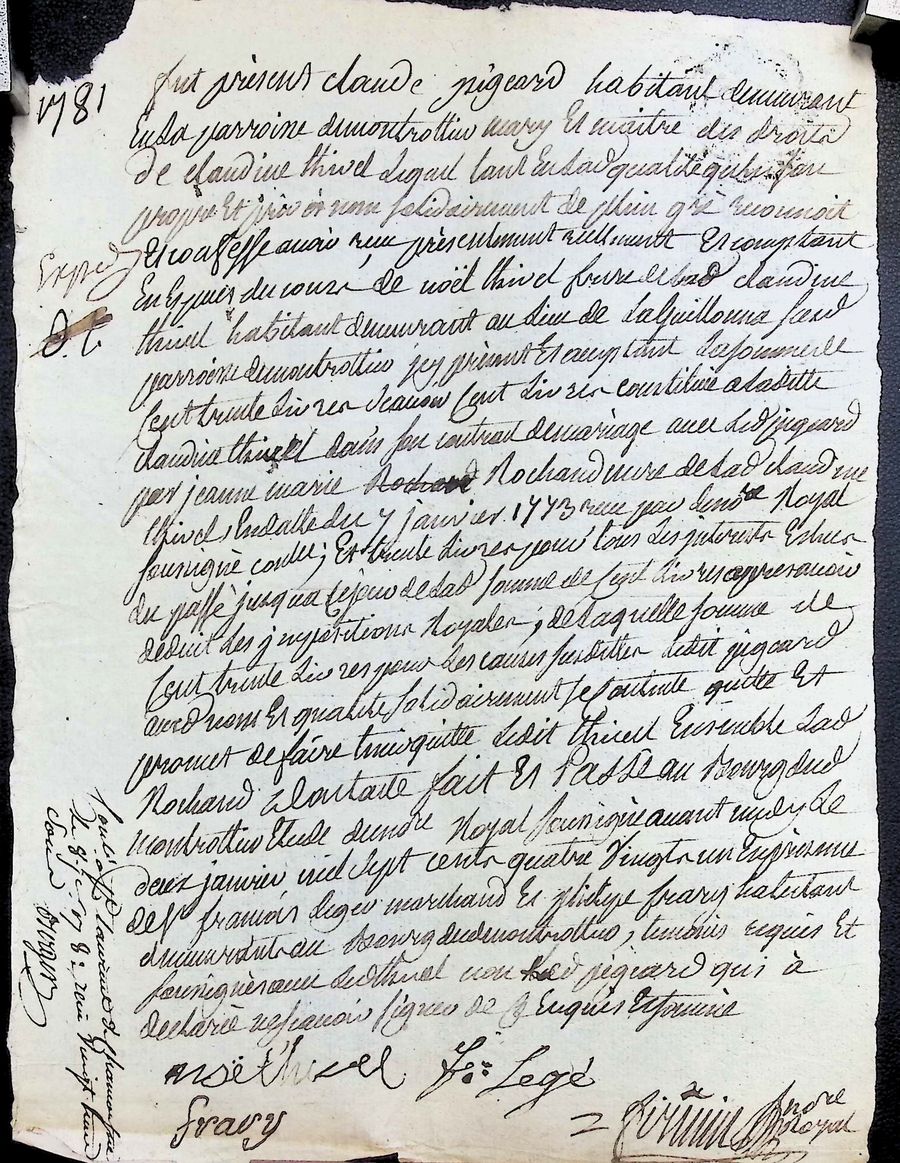 1781
fut présent claude pigeard habitant demeurant
En la parroisse demontrottier mary Et maitre des droits
de claudine thivel Lequel tant En lad qualité qu'En son
propre Et privé nom solidairement de plein gré reconnoit
Expéd
Et confesse avoir reçu présentement reellement Et comptant
En Espèces du cours de noël thivel frere de lad claudine
thivel habitant demeurant au lieu de La Guillonna
parroisse demontrottier jcy présent Et acceptant La somme de
Cent trente Livres sçavoir Cent Livres constituée a Laditte
claudine thivel dans son contrat demariage avec Led pigeard
par jeanne marie Rochand mere de Lad claudine
thivel, En datte du 7 janvier 1773 reçu par le nore Royal
soussigné controllé; Et trente Livres pour tous Les jnterests Echus
du passé jusqua cejour de Lad somme de Cent Livres apres avoir
déduit Les jmpositions Royales; de Laquelle somme de
Cent trente Livres pour Les causes susdittes Ledit pigeard
auxd noms Et qualités solidairement se contente quitte Et
promet de faire tenir quitte Ledit thivel Ensemble Lad
Rochand fait Et Passé au Bourg dud
montrottier Etude dunore Royal soussigné avant midy Le
deux janvier mil sept cents quatre vingts un En présence
de sr françois Legé marchand Et philipe fravy habitant
demeurants au Bourg dudmontrottier, temoins requis Et
soussignés avec Led thivel non Led pigeard qui a
declaré ne sçavoir signer de ce Enquis Et sommé
noël thivel fr: Legé
fravy
nore Royal